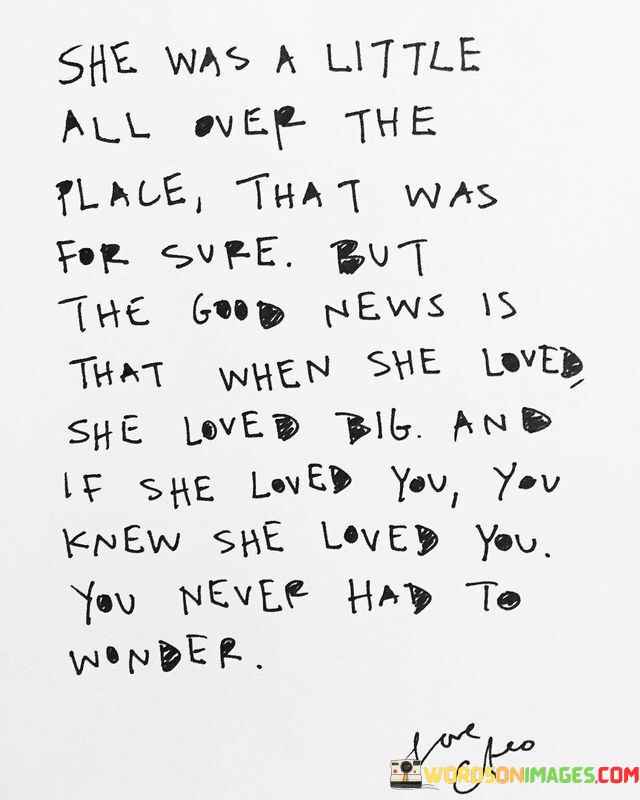 SHE WAS A LITTLE
ALL OVER THE
PLACE, THAT WAS
FOR SURE. BUT
THE GOOD NEWS IS
THAT WHEN SHE LOVED,
SHE LOVED BIG. AND
IF SHE LOVED YOU, YOU
KNEW SHE LOVED YOU.
YOU NEVER HAD TO
WONDER.
Love
Cleo
WORDSONIMAGES.COM